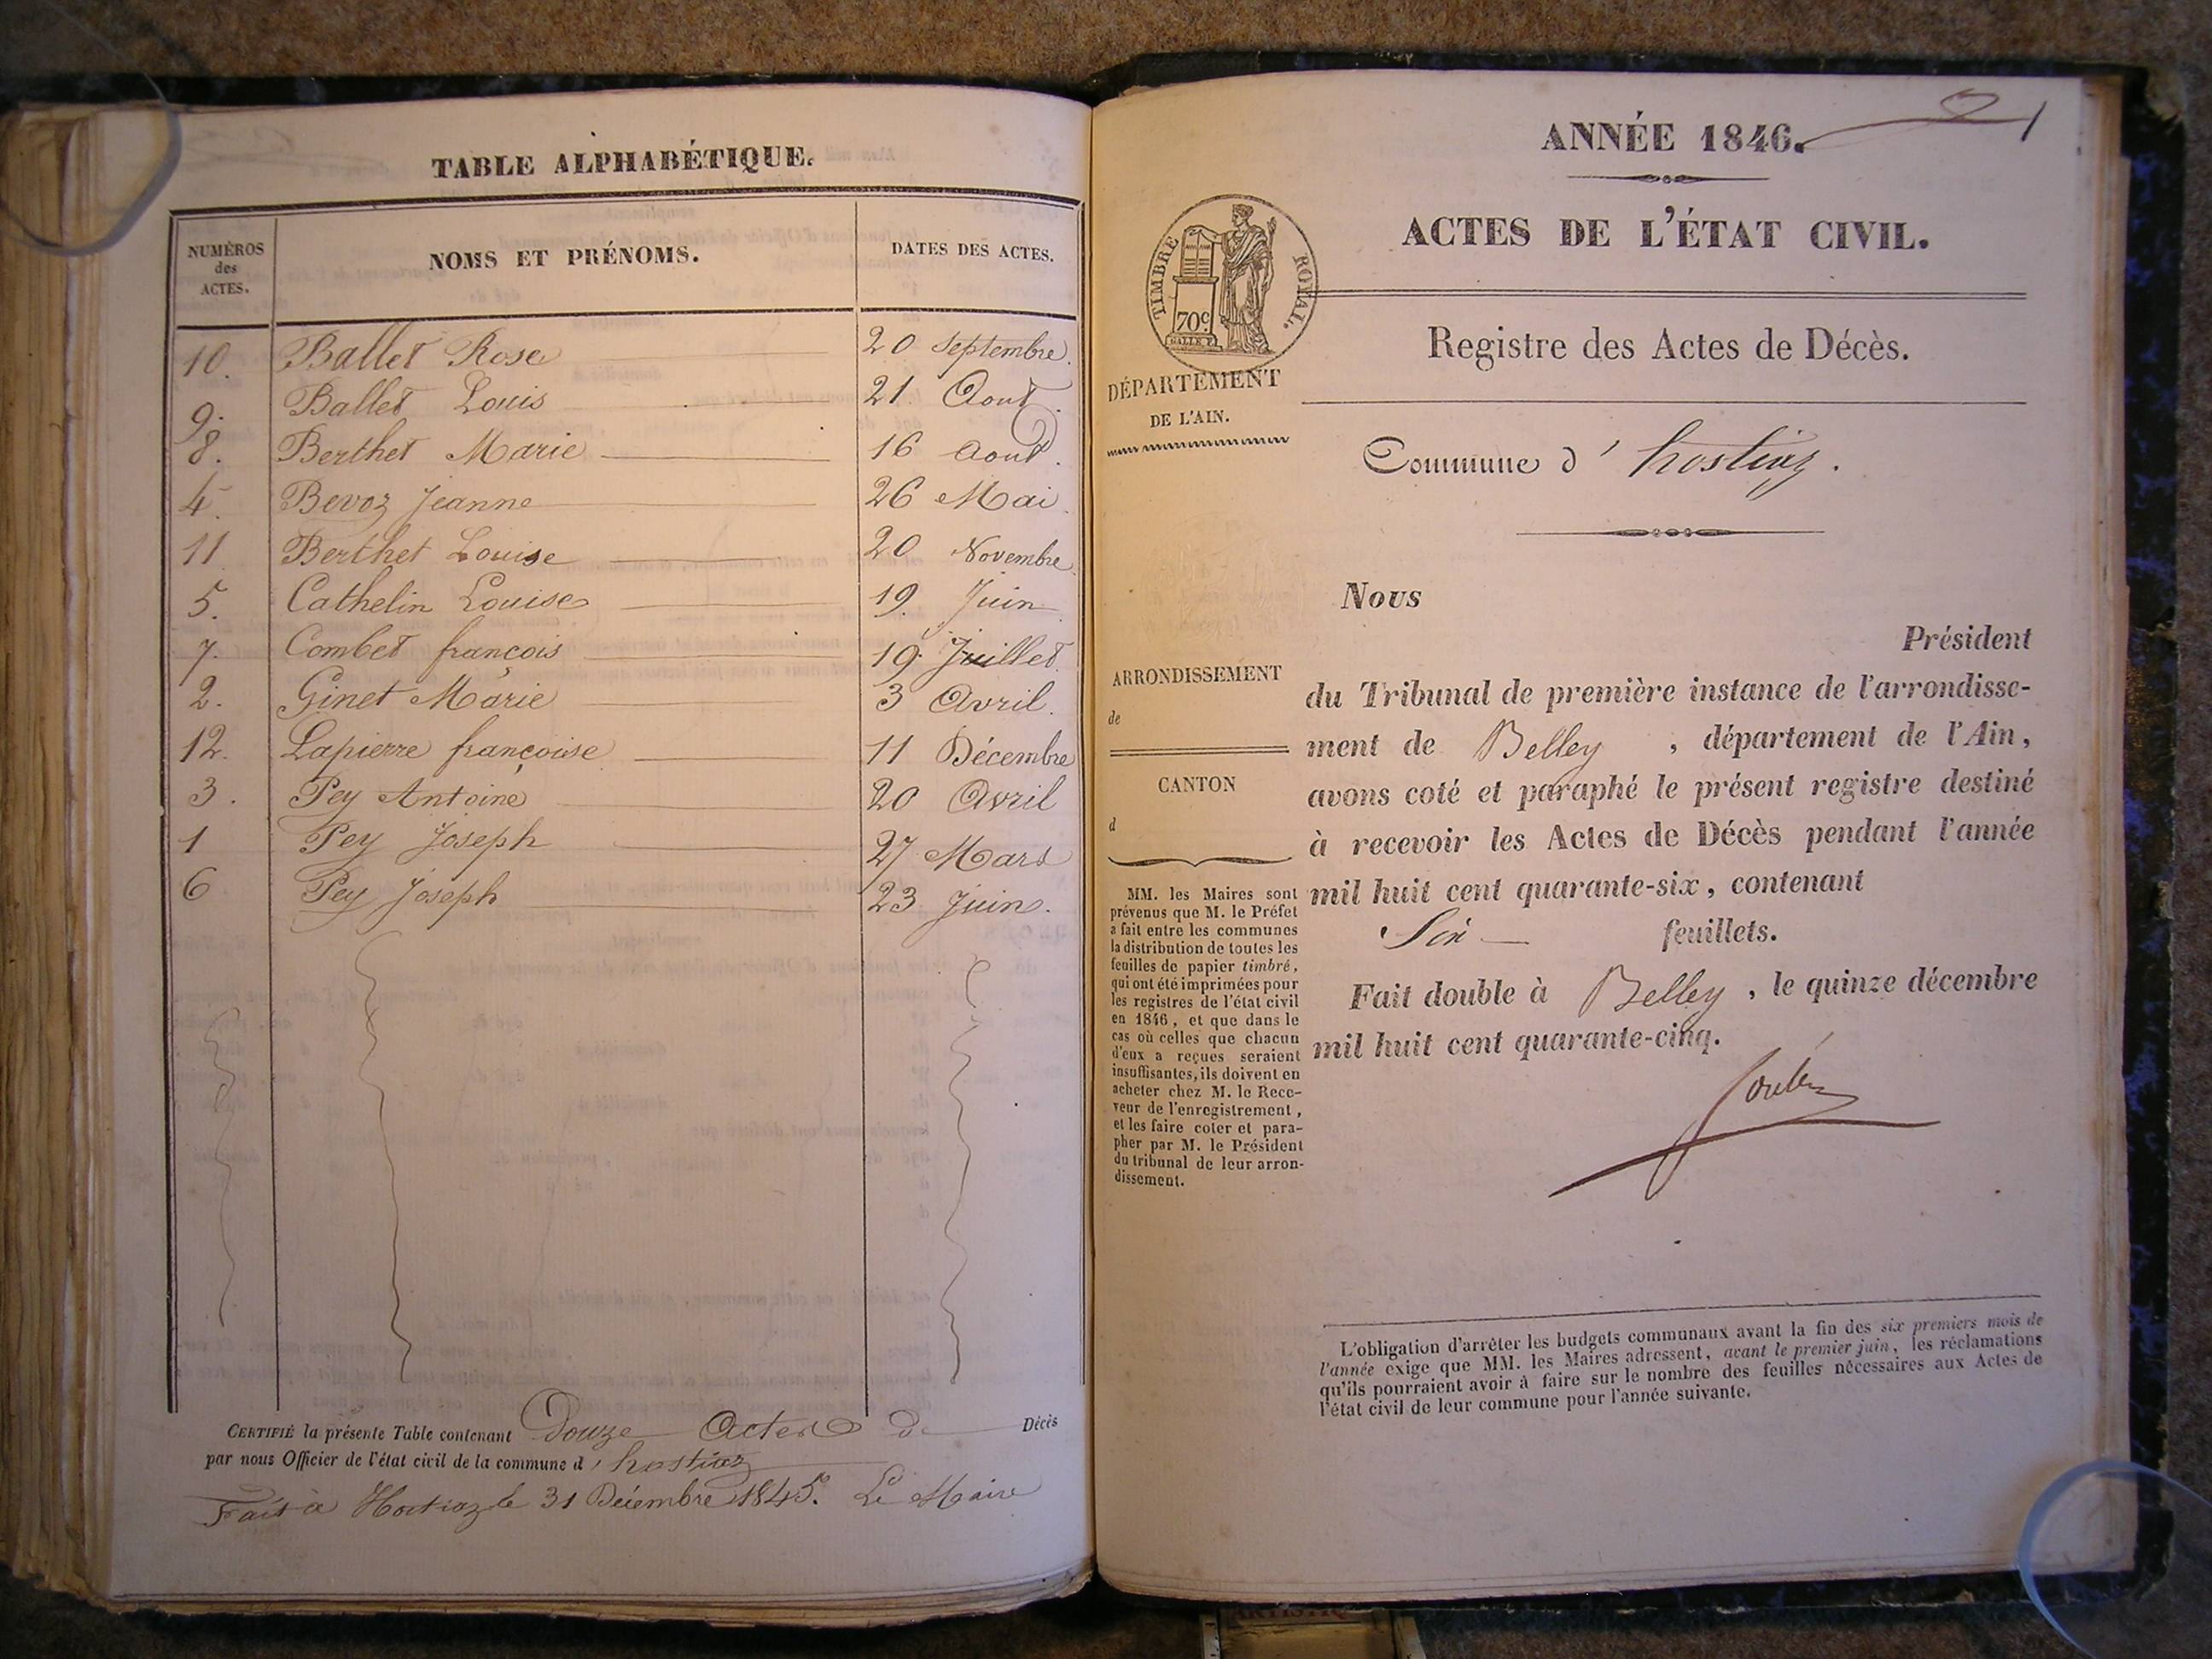 TABLE ALPHABÉTIQUE.
NUMÉROS des ACTES. NOMS ET PRÉNOMS. DATES DES ACTES.
10. Ballet Rose 20 Septembre.
9. Ballet Louis 21 Aout.
8. Berthet Marie 16 Aout.
4. Bevoz Jeanne 26 Mai.
11 Berthet Louise 20 Novembre.
5. Cathelin Louise 19. Juin
7. Combet françois 19. Juillet.
2. Ginet Marie 3 Avril.
12. Lapierre françoise 11 Décembre
3. Pey Antoine 20 Avril
1 Pey Joseph 27 Mars
6 Pey Joseph 23 Juin.
CERTIFIÉ la présente Table contenant Douze Actes De Décès
par nous Officier de l'état civil de la commune d'hostiaz
Fait à Hostiaz le 31 Décembre 1845. Le Maire
ANNÉE 1846.
1
ACTES DE L'ÉTAT CIVIL.
TIMBRE ROYAL.
70c
Registre des Actes de Décès.
DÉPARTEMENT
DE L'AIN.
Commune d'hostiaz.
Nous
Président
ARRONDISSEMENT
de
CANTON
d
du Tribunal de première instance de l'arrondisse-
ment de Belley, département de l'Ain,
avons coté et paraphé le présent registre destiné
à recevoir les Actes de Décès pendant l'année
mil huit cent quarante-six, contenant
Six feuillets.
Fait double à Belley, le quinze décembre
mil huit cent quarante-cinq.
MM. les Maires sont
prévenus que M. le Préfet
a fait entre les communes
la distribution de toutes les
feuilles de papier timbré,
qui ont été imprimées pour
les registres de l'état civil
en 1846, et que dans le
cas où celles que chacun
d'eux a reçues seraient
insuffisantes, ils doivent en
acheter chez M. le Rece-
veur de l'enregistrement,
et les faire coter et para-
pher par M. le Président
du tribunal de leur arron-
dissement.
L'obligation d'arrêter les budgets communaux avant la fin des six premiers mois de
l'année exige que MM. les Maires adressent, avant le premier juin, les réclamations
qu'ils pourraient avoir à faire sur le nombre des feuilles nécessaires aux Actes de
l'état civil de leur commune pour l'année suivante.